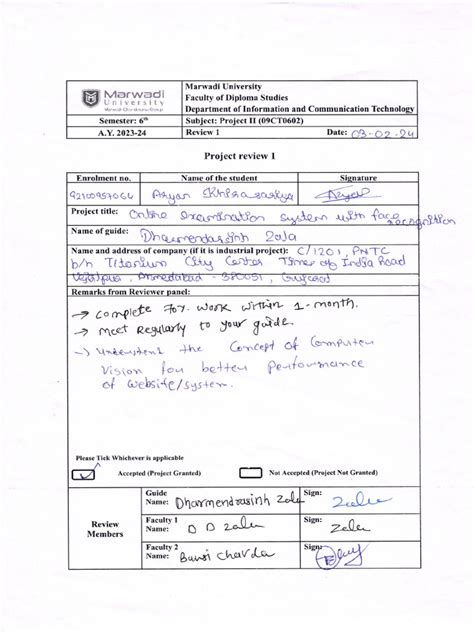 Marwadi
University
Marwadi Chandarana Group
Marwadi University
Faculty of Diploma Studies
Department of Information and Communication Technology
Semester: 6th
Subject: Project II (09CT0602)
A.Y. 2023-24
Review 1
Date: 03-02-24
Project review 1
Enrolment no.
Name of the student
Signature
92100957066
Aryan
Project title: Online examination system with face recognition
Name of guide: Dharmendrasinh Zala
Name and address of company (if it is industrial project): C/1201, PNTC
b/n Titanium City Center Times of India Road
Ahmedabad - 380051, Gujarat
Remarks from Reviewer panel:
→ complete 70% work within 1-month.
→ Meet Regularly to your guide.
→ Understand the Concept of Computer
Vision for better Performance
of website/system.
Please Tick Whichever is applicable
✓ Accepted (Project Granted)
Not Accepted (Project Not Granted)
Review
Members
Guide
Name: Dharmendrasinh Zala
Sign: Zala
Faculty 1
Name: D D Zala
Sign: Zala
Faculty 2
Name: Bansi Chavda
Sign: